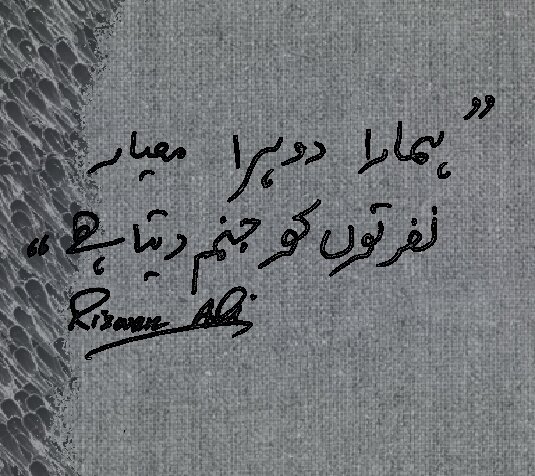 ”ہمارا دوہرا معیار
نفرتوں کو جنم دیتا ہے“
Rizwan Ali